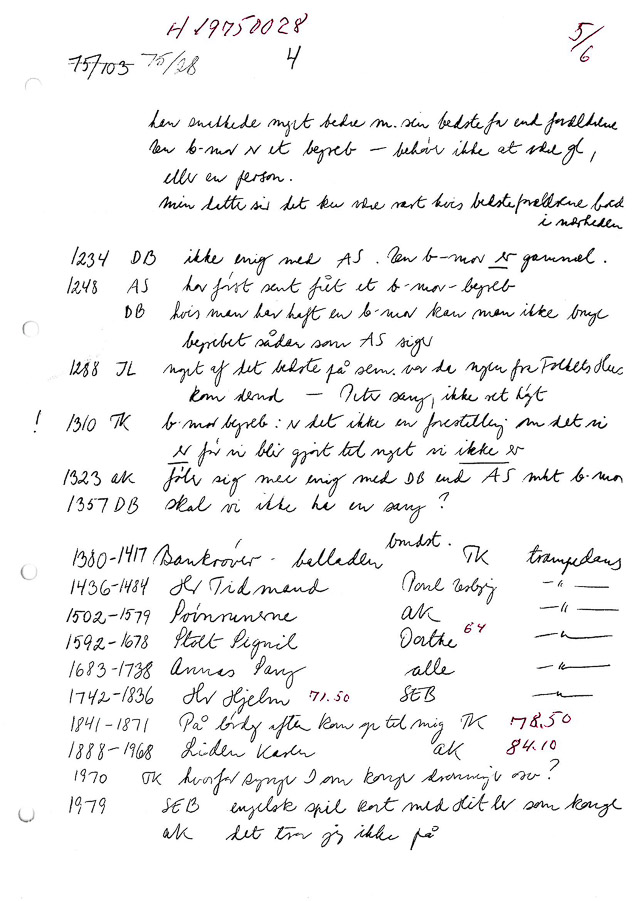 H 19750028
5/6
75/103 75/28 4
han snakkede nyet bedre m. sin bedstefar end forældrene
en b-mor er et begreb – behøver ikke at være gl,
eller en person.
min datter sir det ku være rart hvis bedsteforældrene boede
i nærheden
1234 DB ikke enig med AS. en b-mor er gammel.
1248 AS har først sent fået et b-mor-begreb
DB hvis man har haft en b-mor kan man ikke bruge
begrebet sådan som AS siger
1288 JL nyet af det bedste på sem. var da nyen fra Folkets Hus
kom derud – Peter sang, ikke ret højt
! 1310 TK b-mor begreb: er det ikke en forestilling om det vi
er før vi blir gjort til nyet vi ikke er
1323 ak føler sig mere enig med DB end AS mht b-mor
1357 DB skal vi ikke ha en sang?
1380-1417 Bankrøver-balladen bmdst. TK trampedans
1436-1484 Hr Tidmand Poul -"-
1502-1579 Povnsrunerne ak -"-
1592-1678 Stolt Signil Dorthe 64 -"-
1683-1738 Annas Sang alle -"-
1742-1836 Hr Hjelm 71.50 SEB -"-
1841-1871 På lørdag aften kom op til mig TK 78.50
1888-1968 Liden Karen ak 84.10
1970 TK hvorfor synge I om konge dronninge osv?
1979 SEB engelsk spil kort med Hitler som konge
ak det tror jeg ikke på